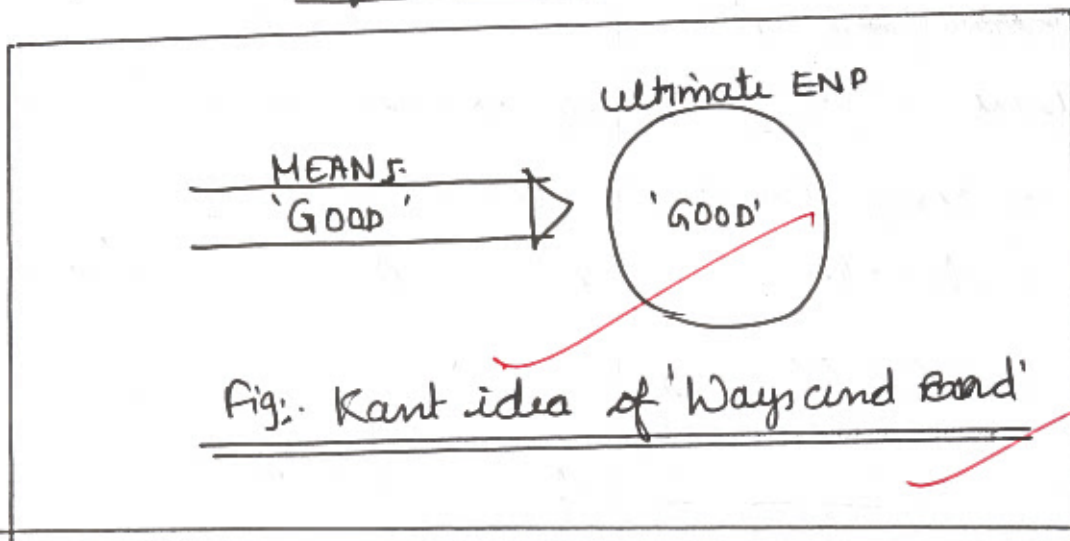 Ultimate END
MEANS
'GOOD'
'GOOD'
Fig:. Kant idea of 'Ways and end'